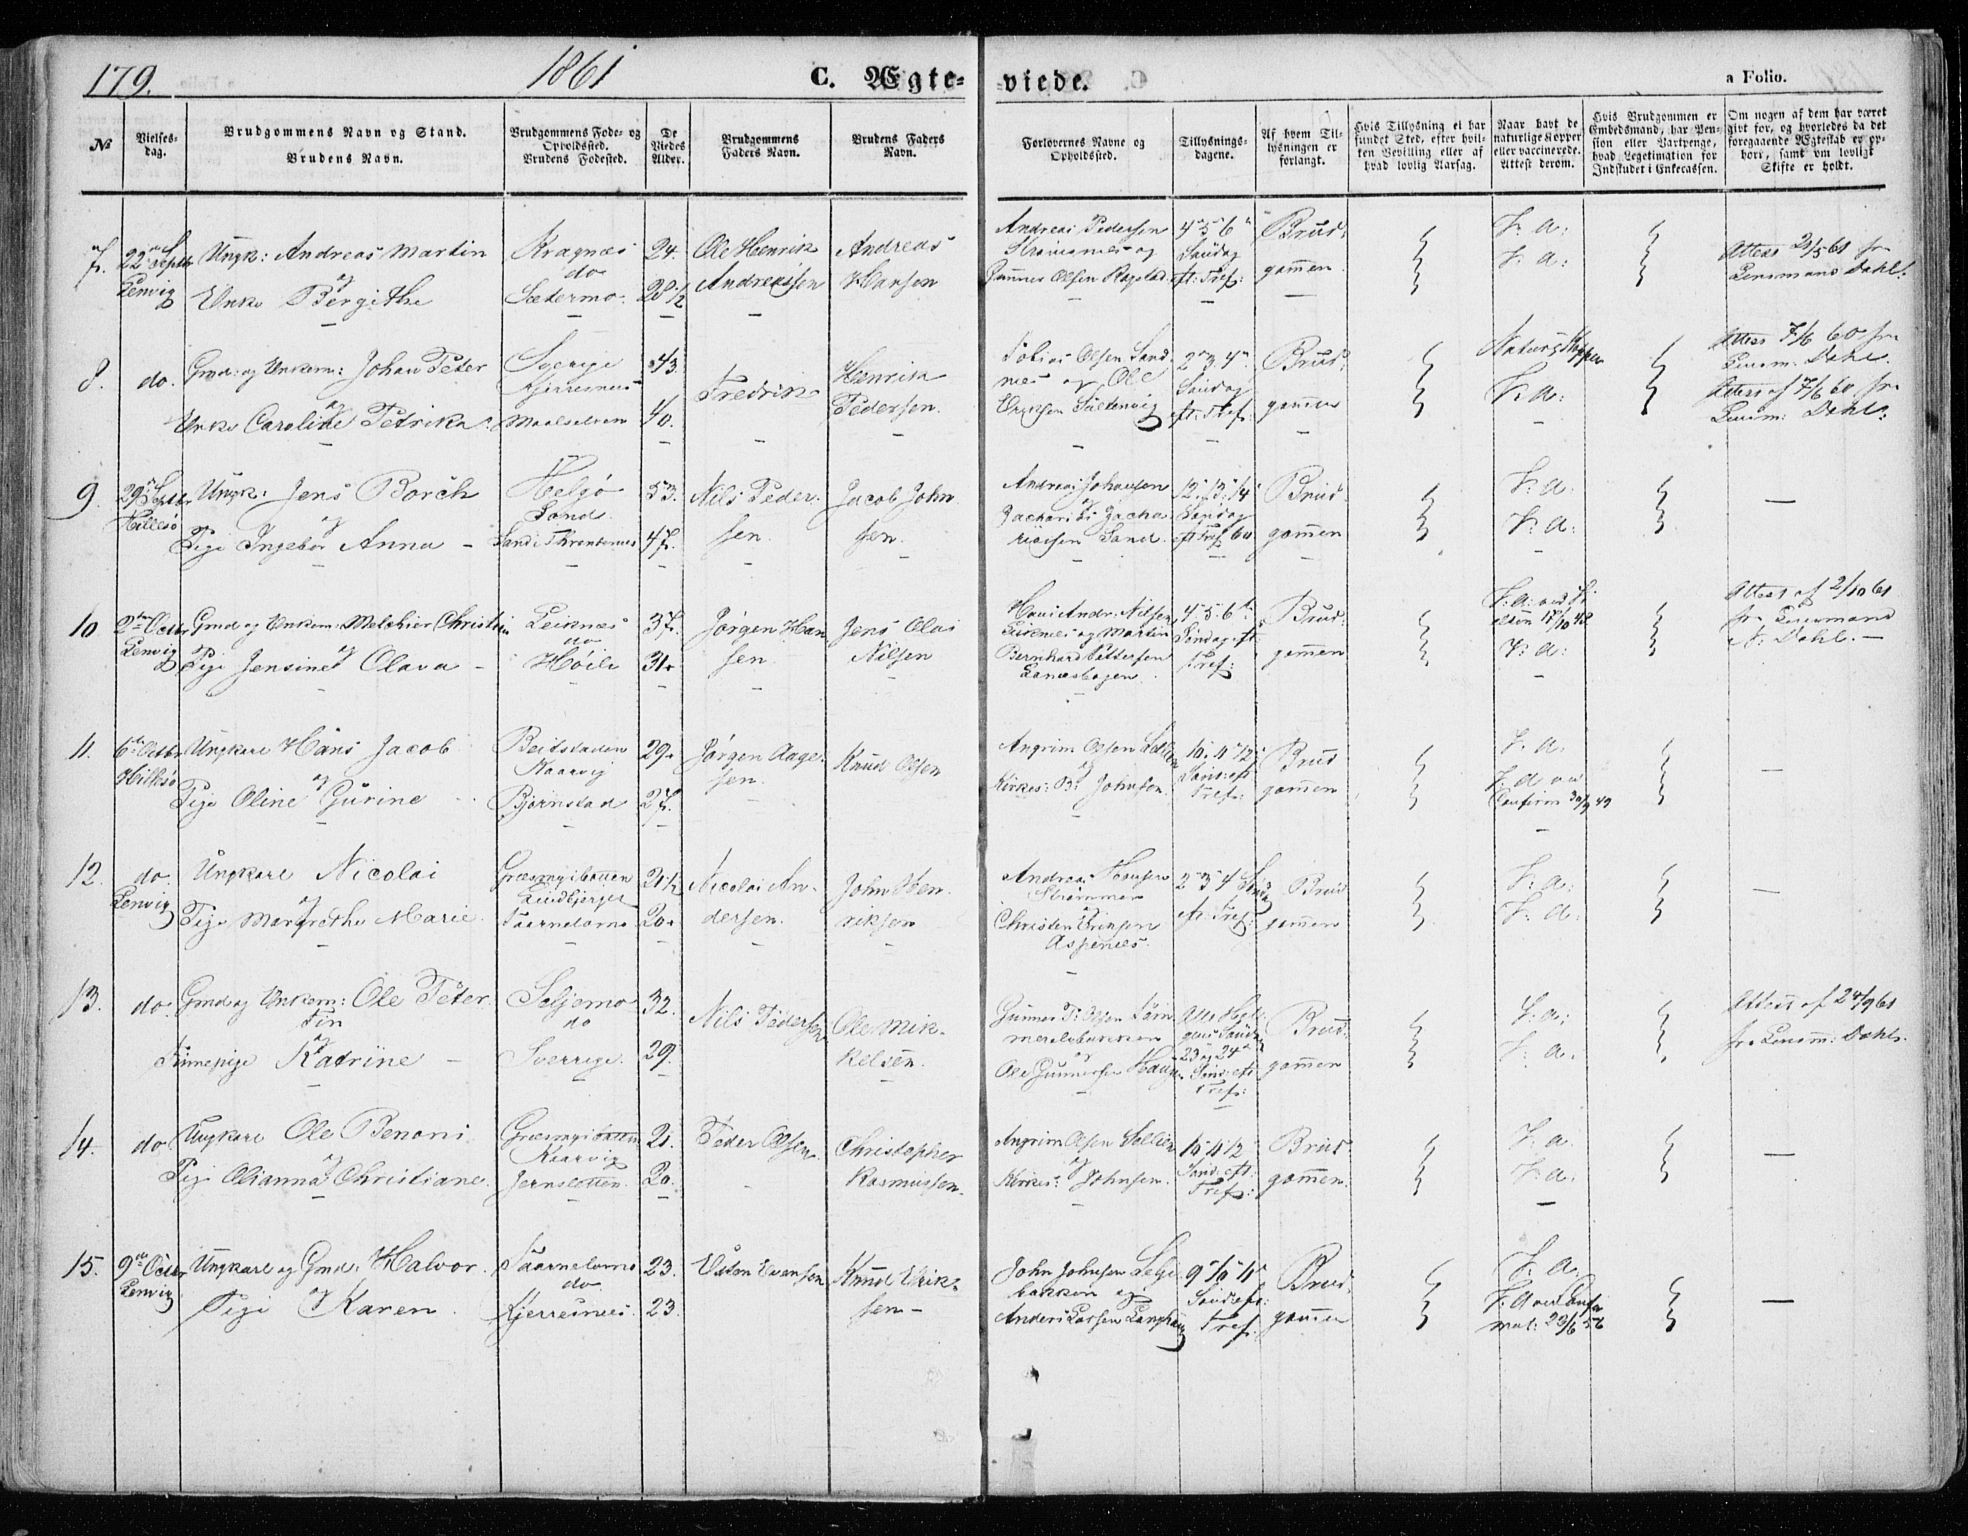 179. 1861 C. Ægte-viede. a Folio.
No
Vielses-dag.
Brudgommens Navn og Stand.
Brudens Navn.
Brudgommens Føde- og Opholdssted.
Brudens Fødested.
De Viedes Alder.
Brudgommens Faders Navn.
Brudens Faders Navn.
Forlovernes Navne og Opholdssted.
Tillysnings-dagene.
Af hvem Tillysningen er forlangt.
Hvis Tillysning ei har fundet Sted, efter hvilken Bevilling eller af hvad lovlig Aarsag.
Naar havt de naturlige Kopper eller vaccinerede. Attest derom.
Hvis Brudgommen er Embedsmand, har Pension eller Vartpenge, hvad Legetimation for Indskudet i Enkecassen.
Om nogen af dem har været gift før, og hvorledes da det foregaaende Ægteskab er ophørt, samt om lovligt Skifte er holdt.
7. 22de Septbr Lenvig
Ungk: Andreas Martin
og
Enke Bergithe
Kragnæs
do
Sætermo
24.
28 1/2
Ole Henrik Andreassen
Andreas Hansen
Andreas Pedersen
og
Gunner Olsen
4 5 6
Søndag
eft: Tref:
Brud-
gommen
V. a:
V. a:
Attest 21/5 61 fra
Lensmand Dahl.
8. do.
Gmd: og Enkem: Johan Peter
og
Enke Caroline Petrika
Sverige
Kjerresnes
Maalselven
43.
40.
Fredrik
Henrik Pedersen.
Tobias Olsen Sand
nes og Ole
Eriksen
2 3. 4
Søndag
eft: Tref:
Brud-
gommen
Naturl: Kopper
V: a:
Attest 7/6 60 fra
Lensm: Dahl.
Attest af 7/6 60 fra
Lensm: Dahl.
9. 29 Septbr Hillesø
Ungk: Jens Borch
og
Pige Ingebor Anna
Helgø
Sand.
53.
47.
Nils Peder-
sen.
Jacob John
sen.
Andreas Johansen
og
Zacharias Zacha
riasen Sand.
12 13 14
Søndag
eft Tref 60
Brud-
gommen
V. a.
V: a:
10 2den Octbr Lenvig
Gmd og Enkem: Melchier Christian
og
Pige Jensine Olava
Leiknæs
do
Høili
37.
31.
Jørgen Han
sen.
Jens Olai
Nilsen
Hans Andr: Nilsen
Leiknes og Martin
Bernhard Pettersen
4 5 6
Søndag eft.
Tref:
Brud-
gommen
V: a:
Attest af 2/10 61
fra Lensmand
Dahl.
11. 6te Octbr Hillesø
Ungkare Hans Jacob
og
Pige Oline Gurine
Beitstaden
Kaarvig
Bjørnstad
29.
27.
Jørgen Aage-
sen.
Knud Olsen
Angrim Olsen
og
Kirkes: B: Johnsen.
10 11 12
Sønd: eft
Tref:
Brud-
gommen
V. a:
V. a ved
Confirm 30/9 49
12. do. Lenvig
Ungkare Nicolai
og
Pige Margrethe Marie
Græsmyrbotten
Lindbjerget
Taarnelvmo
21 1/2
20.
Nicolai An-
dersen.
John Hen
riksen
Andreas Hansen
Strømmen
og
Christen Eriksen
Aspenes.
2 3 4 Sønd
eft: Tref:
Brud-
gommen
V. a:
V: a:
13. do
Gmd og Enkem: Ole Peter
Fin
og
Finnepige Katrine
Seljemo
do
Sverrige.
32.
29.
Nils Pedersen
Ole Mik-
kelsen.
Gunner T: Olsen
og
Ole Gunnersen Haugen
23 og 24
Sønd: eft
Tref:
Brud-
gommen
V. a:
V. a.
Attest af 24/9 61
fra Lensm: Dahl.
14. do
Ungkare Ole Benoni
og
Pige Olianna Christiane.
Græsmyrbotten
Kaarvig
Jernsletten.
21.
20.
Peder Olsen
Christopher
Rasmussen.
Angrim Olsen
og
Kirkes: Johnsen.
10 11 12
Sønd: eft.
Tref:
Brud-
gommen.
V. a.
V: a:
15. 9de Octbr Lenvig
Ungkare og Gmd: Halvor
og
Pige Karen
Taarnelvmo
do
Kjerresnes.
23.
23.
Esten Evensen
Knud Erik-
sen
John Johnsen
bakken og
Anders Larsen
9 10 11
Sønd: eft:
Tref:
Brud-
gommen
V. a.
V: a ved Confir
mat: 23/6 56